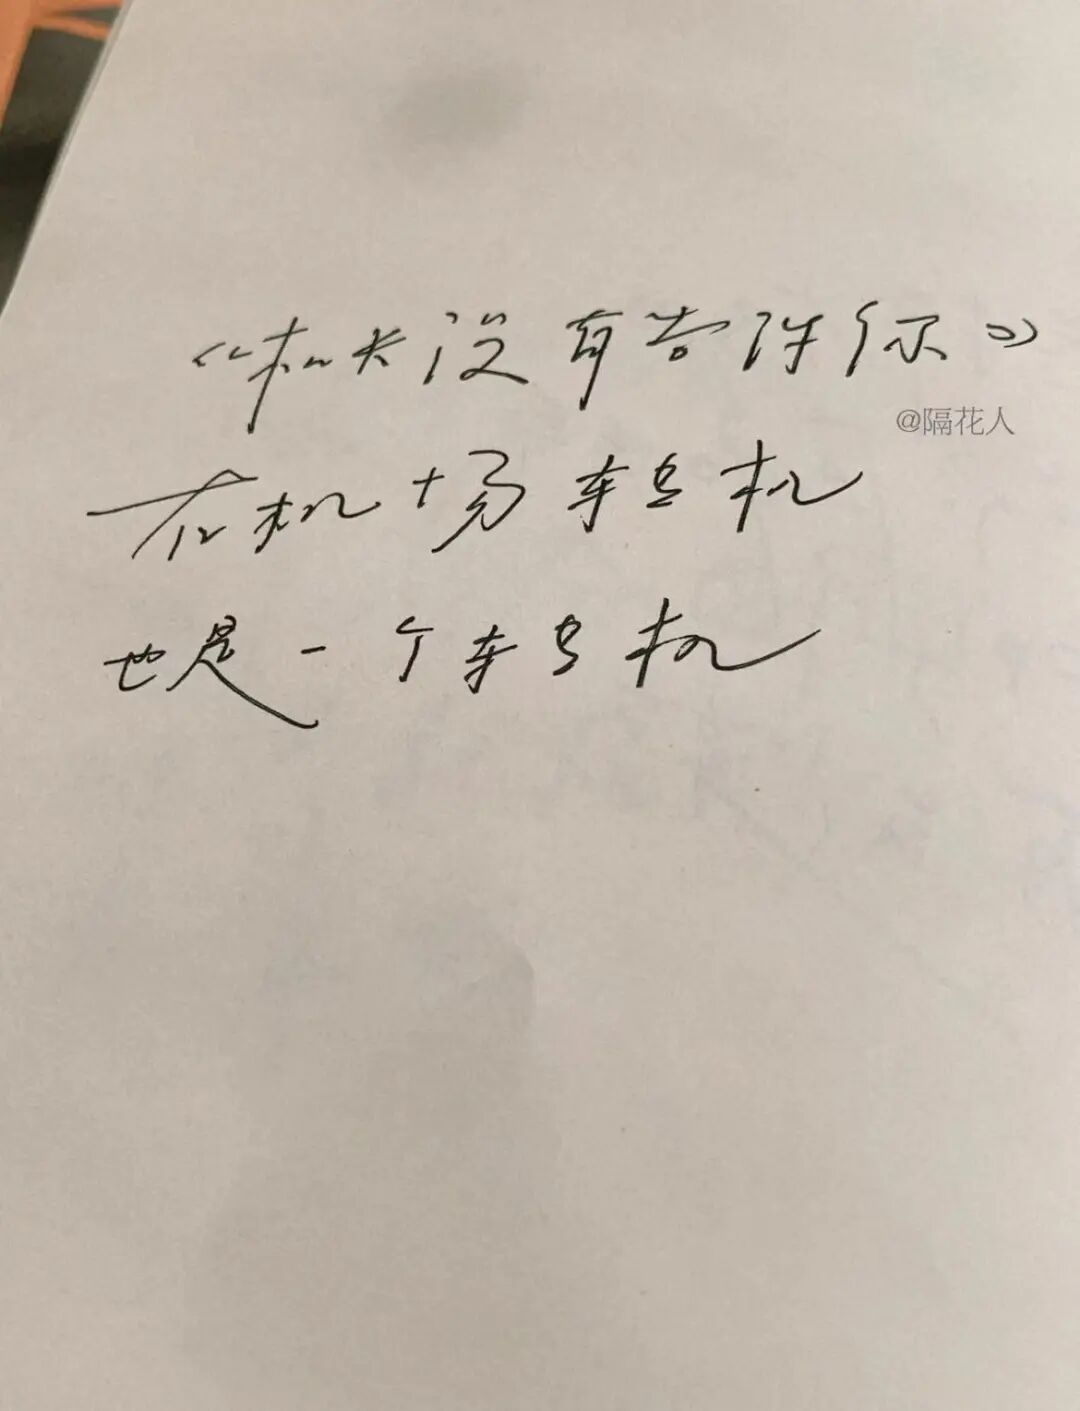 《机长没有告诉你》
@隔花人
在机场转机
也是一个转机